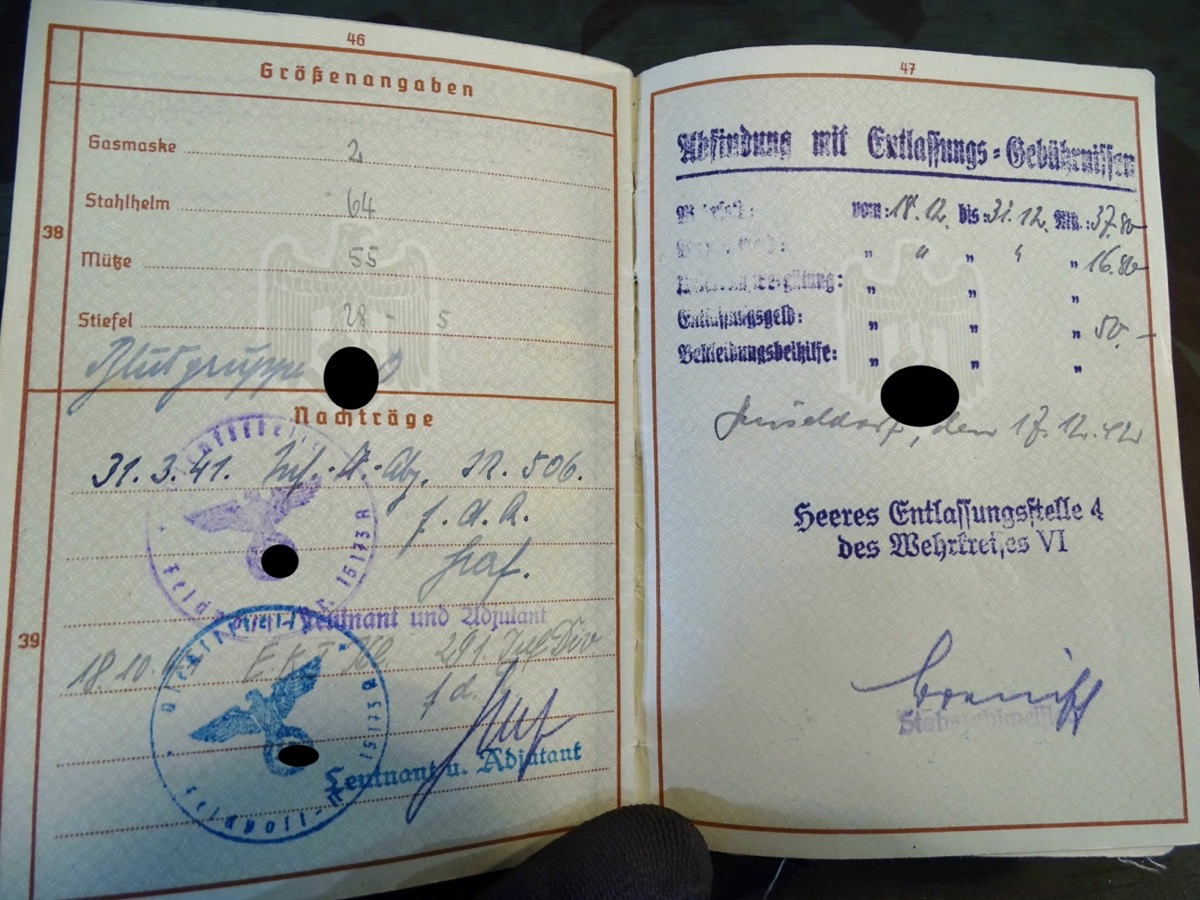 46
Größenangaben
38
Gasmaske 2
Stahlhelm 64
Mütze 55
Stiefel 28 - 5
Blutgruppe O
Nachträge
31.3.41. Inf.-St.-Abz. IR. 506.
f. d. R.
Graf.
15173 A
Leutnant und Adjutant
39
18.10. E.K. I Kl. 291. Inf Div
f d.
15173 A
Leutnant u. Adjutant
47
Abfindung mit Entlassungs-Gebührnissen
vom: 18.12. bis: 31.12. RM.: 37.80
" " " " " 16.80
" " "
Entlassungsgeld: " " " 50.-
Bekleidungsbeihilfe: " " "
Düsseldorf, den 17.12.42
Heeres Entlassungsstelle 4
des Wehrkreises VI
Stabszahlmeister